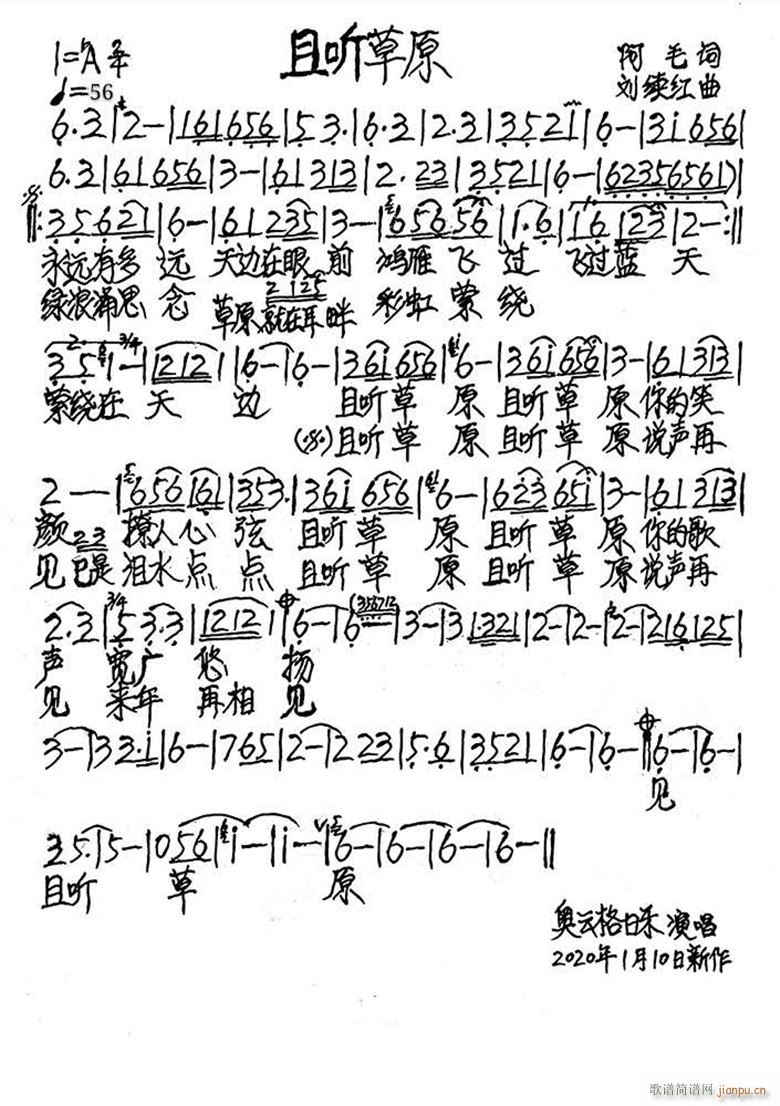 且听草原
1=A 2/4
阿毛 词
♩=56
刘续红 曲
6.3|2-|161656|5 3.|6.3|2.3|3521|6-|31656|
6.3|61656|3-|61313|2.23|3521|6-|62356561)|
35621|6-|61235|3-|65656|1.6|16123|2-:||
永远有多远 天边在眼前 鸿雁飞过 飞过蓝天
2 125
绿浪涌思念 草原就在耳畔 彩虹萦绕
3 5 1-|12121|6-|6-|361656|6-|361656|3-|61313|
萦绕在天边 且听草原且听草原你的笑
且听草原且听草原说声再
2--|656161|353.|361656|6-|623651|3-|61313|
颜 撩人心弦 且听草原且听草原你的歌
23
见已是泪水点点 且听草原且听草原说声再
2.3|5 3.3|12121|6-|6|3-|31321|2-|2-|2-|216125|
声宽广悠扬
见来年再相见
3-|33.1|6-|765|2-|223|5.6|3521|6-|6-||6-|6-|
见
35.|5-|056|1-|1-|6-|6-|6-|6-||
且听草原
演唱
2020年1月10日新作
歌谱简谱网
jianpu.cn